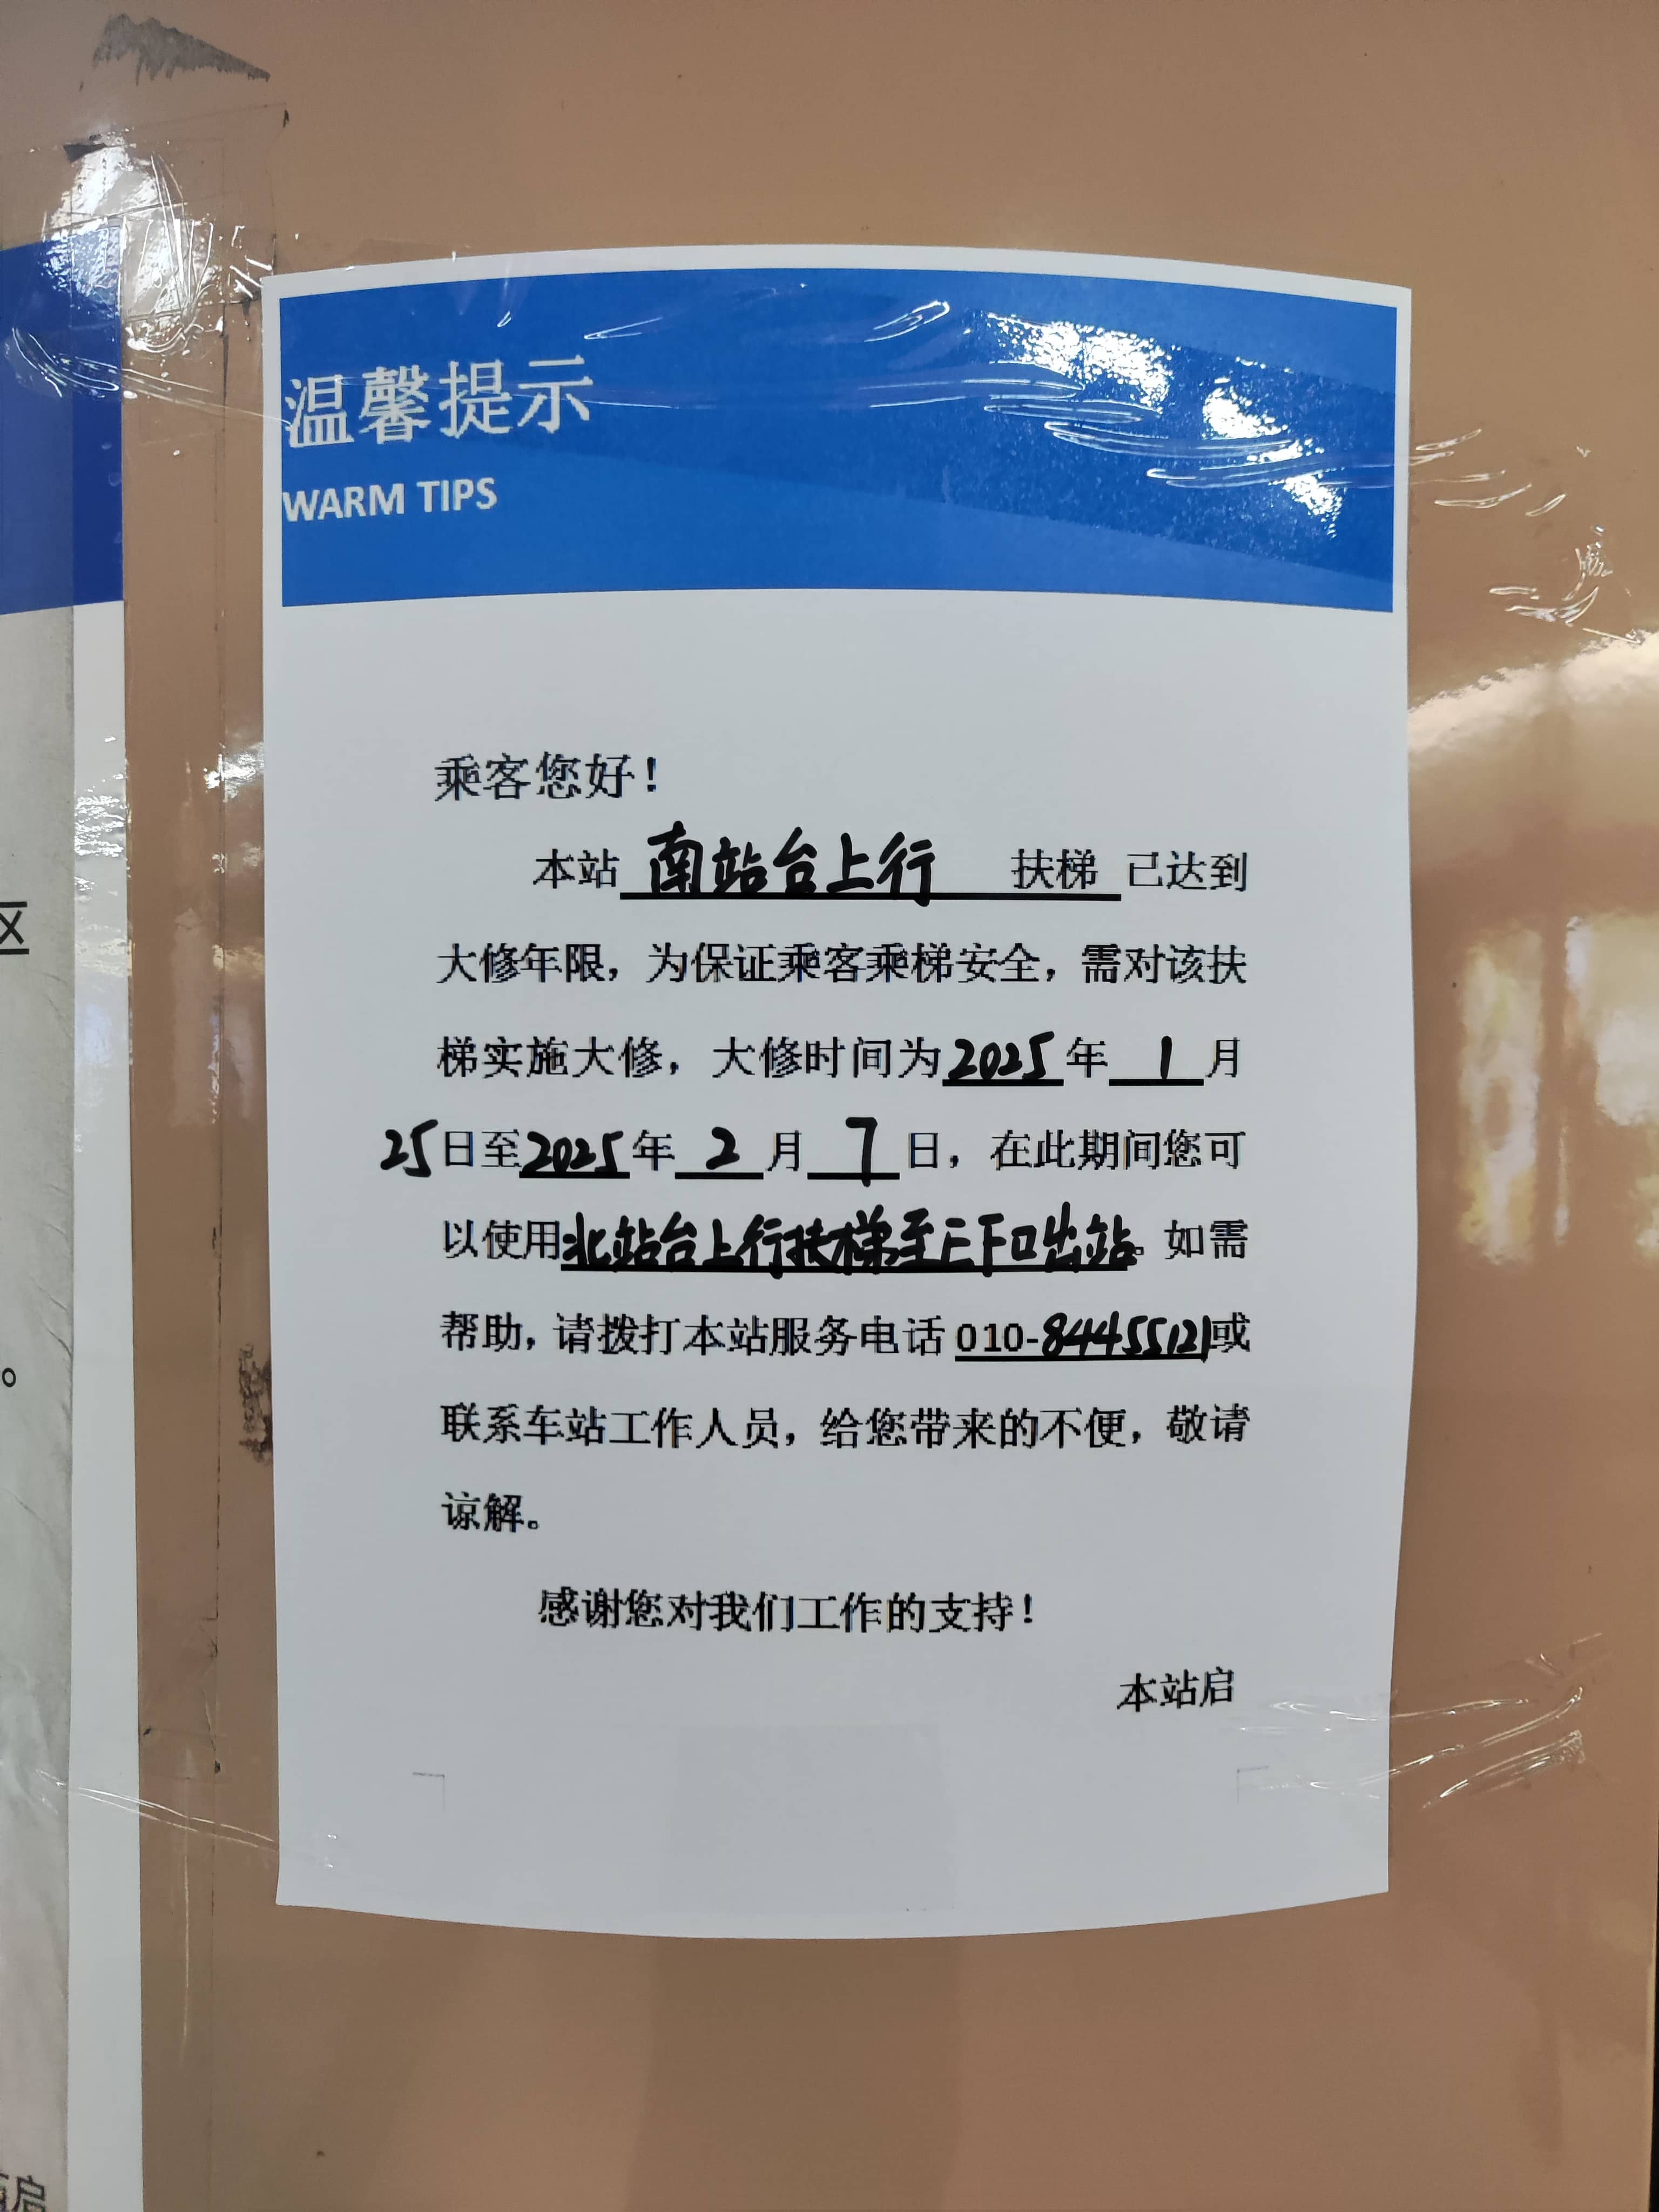 温馨提示
WARM TIPS
乘客您好！
本站 南站台上行 扶梯 已达到
大修年限，为保证乘客乘梯安全，需对该扶
梯实施大修，大修时间为2025年 1 月
25日至2025年 2 月 7 日，在此期间您可
以使用北站台上行扶梯至E F口出站。如需
帮助，请拨打本站服务电话 010-84455121或
联系车站工作人员，给您带来的不便，敬请
谅解。
感谢您对我们工作的支持！
本站启
区
。
启